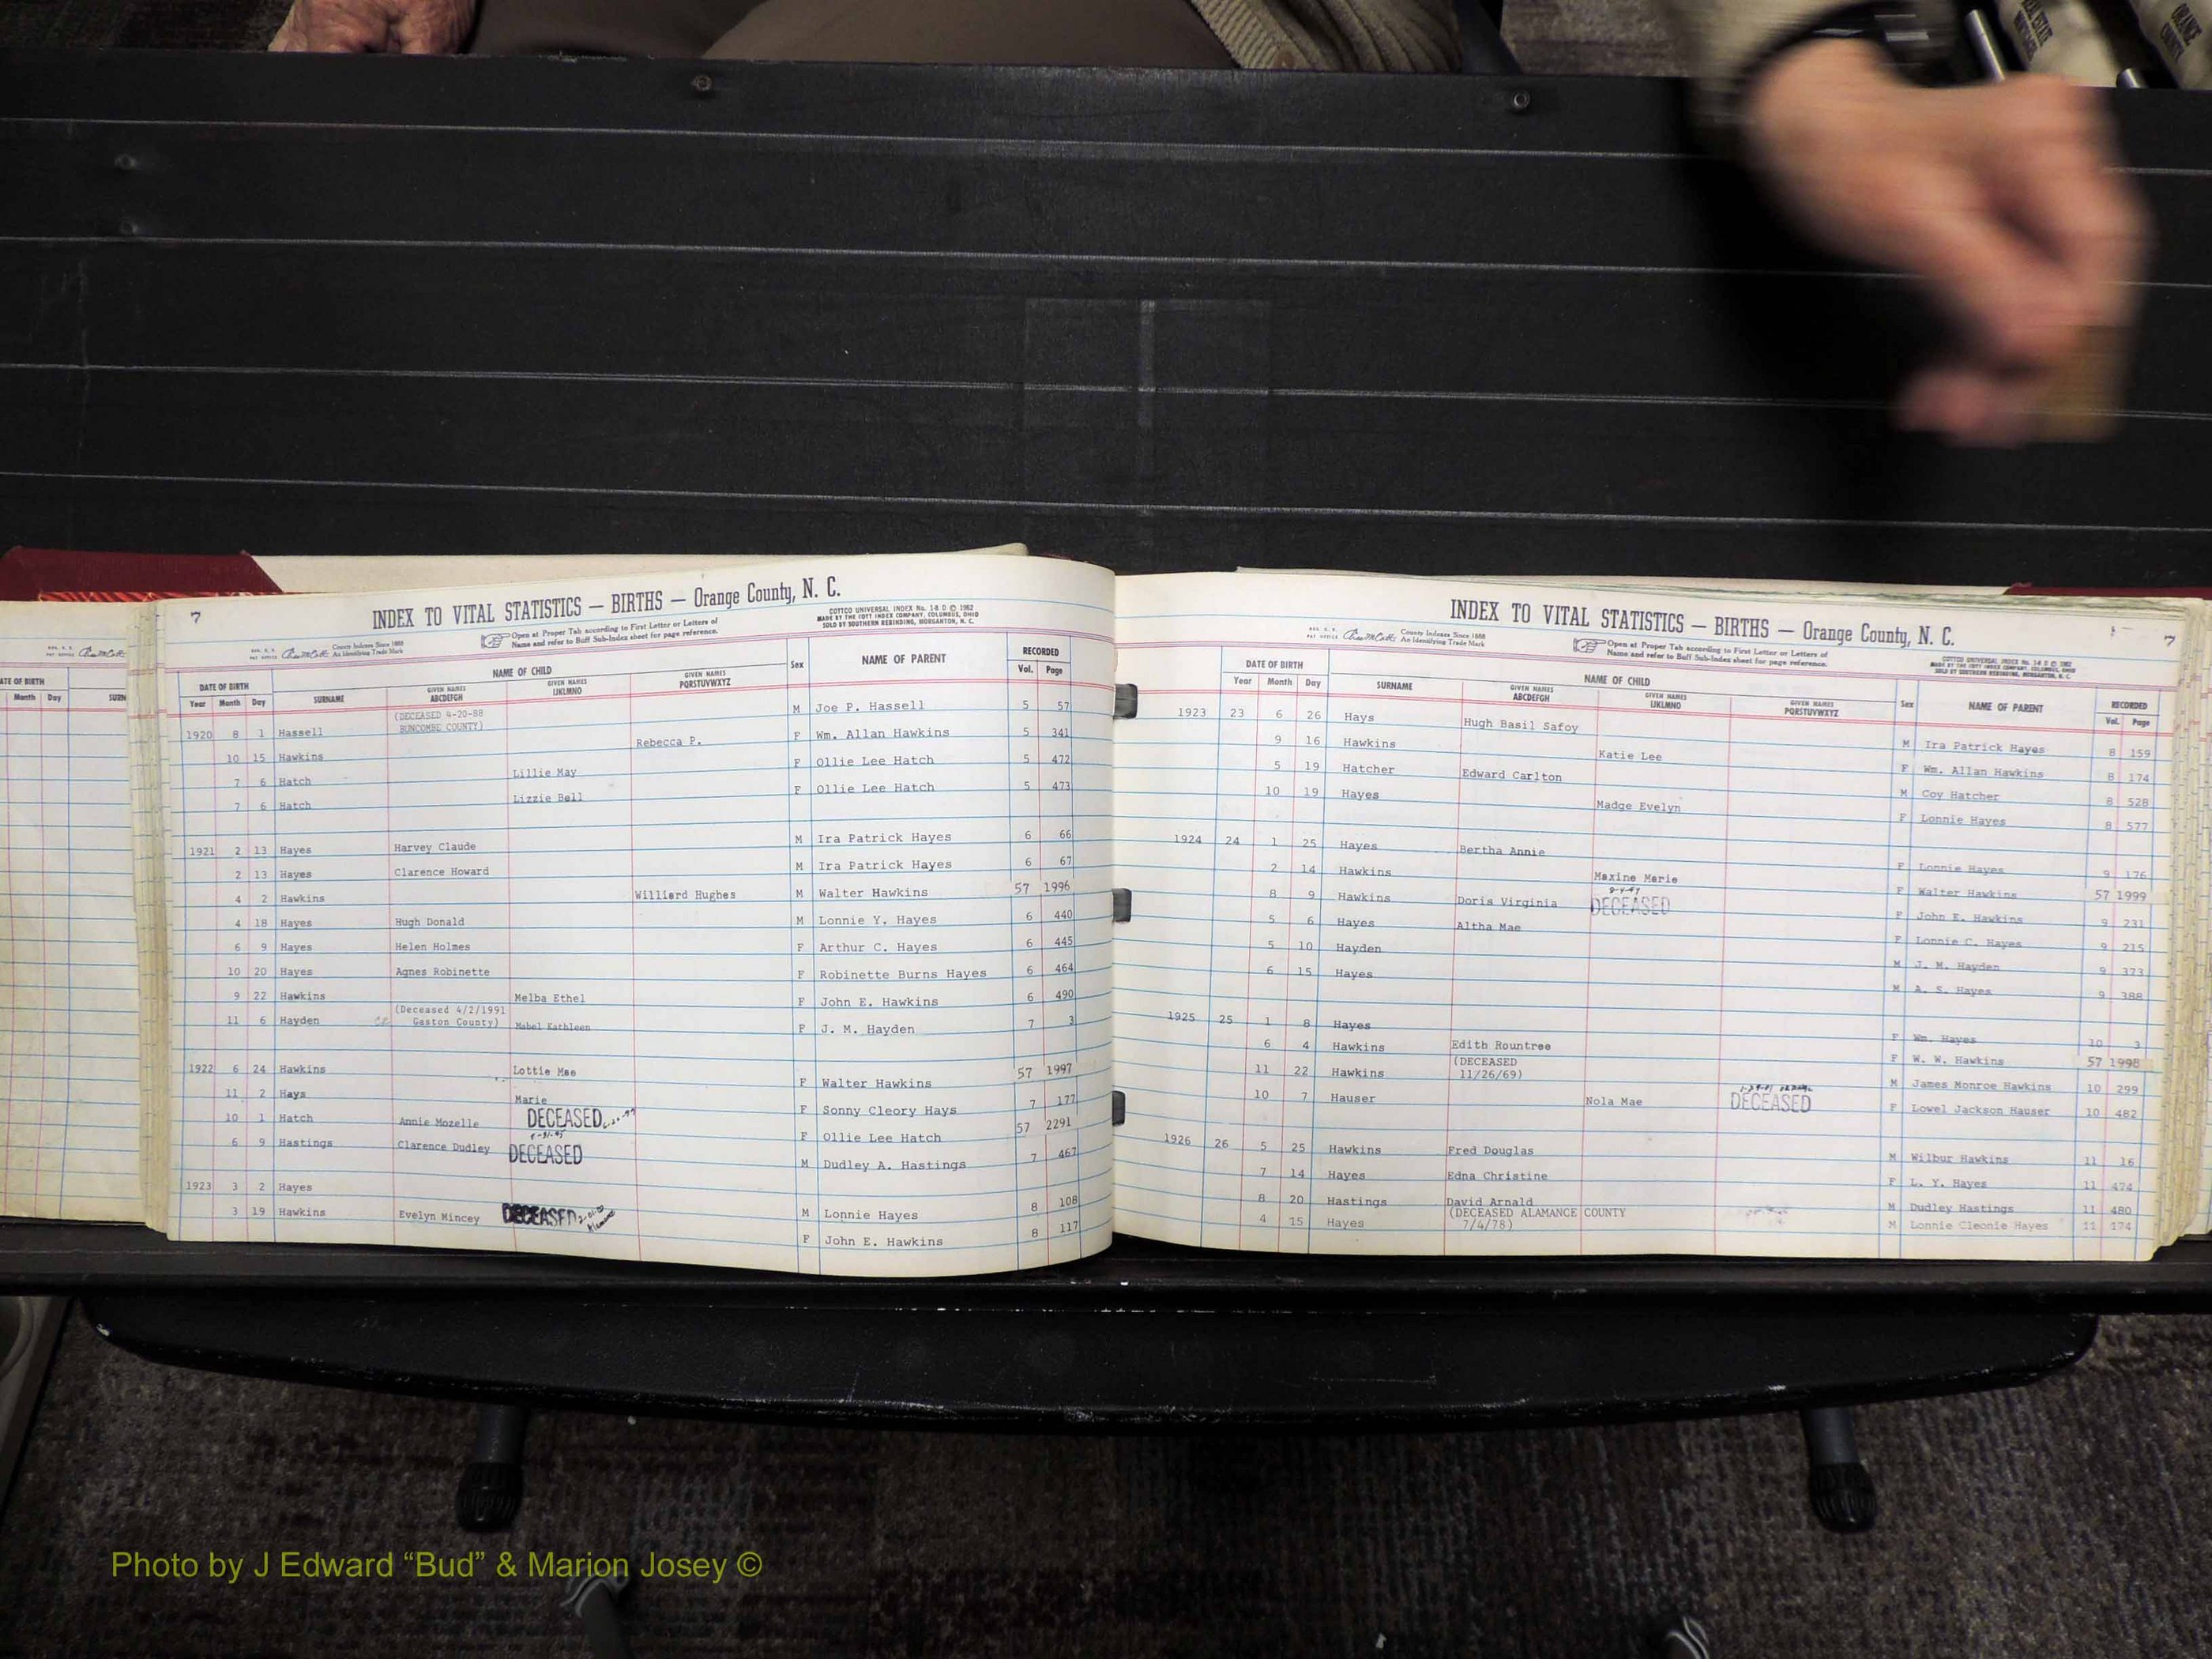 ORANGE COUNTY
ATE OF BIRTH
Month Day SURN
7
INDEX TO VITAL STATISTICS — BIRTHS — Orange County, N. C.
County Indexes Since 1888
An Identifying Trade Mark
Open at Proper Tab according to First Letter or Letters of
Name and refer to Buff Sub-Index sheet for page reference.
COTTCO UNIVERSAL INDEX No. 1-8 D © 1962
MADE BY THE COTT INDEX COMPANY, COLUMBUS, OHIO
SOLD BY SOUTHERN REBINDING, MORGANTON, N. C.
DATE OF BIRTH NAME OF CHILD Sex NAME OF PARENT RECORDED
Year Month Day SURNAME GIVEN NAMES ABCDEFGH GIVEN NAMES IJKLMNO GIVEN NAMES PQRSTUVWXYZ Vol. Page
1920 8 1 Hassell (DECEASED 4-20-88 BUNCOMBE COUNTY) M Joe P. Hassell 5 57
10 15 Hawkins Rebecca P. F Wm. Allan Hawkins 5 341
7 6 Hatch Lillie May F Ollie Lee Hatch 5 472
7 6 Hatch Lizzie Bell F Ollie Lee Hatch 5 473
1921 2 13 Hayes Harvey Claude M Ira Patrick Hayes 6 66
2 13 Hayes Clarence Howard M Ira Patrick Hayes 6 67
4 2 Hawkins Williard Hughes M Walter Hawkins 57 1996
4 18 Hayes Hugh Donald M Lonnie Y. Hayes 6 440
6 9 Hayes Helen Holmes F Arthur C. Hayes 6 445
10 20 Hayes Agnes Robinette F Robinette Burns Hayes 6 464
9 22 Hawkins Melba Ethel F John E. Hawkins 6 490
11 6 Hayden (Deceased 4/2/1991 Gaston County) Mabel Kathleen F J. M. Hayden 7 3
1922 6 24 Hawkins Lottie Mae F Walter Hawkins 57 1997
11 2 Hays Marie F Sonny Cleory Hays 7 177
10 1 Hatch Annie Mozelle DECEASED F Ollie Lee Hatch 57 2291
6 9 Hastings Clarence Dudley DECEASED M Dudley A. Hastings 7 467
1923 3 2 Hayes M Lonnie Hayes 8 108
3 19 Hawkins Evelyn Mincey DECEASED F John E. Hawkins 8 117
INDEX TO VITAL STATISTICS — BIRTHS — Orange County, N. C.
7
County Indexes Since 1888
An Identifying Trade Mark
Open at Proper Tab according to First Letter or Letters of
Name and refer to Buff Sub-Index sheet for page reference.
COTTCO UNIVERSAL INDEX No. 1-8 D © 1962
MADE BY THE COTT INDEX COMPANY, COLUMBUS, OHIO
SOLD BY SOUTHERN REBINDING, MORGANTON, N. C.
DATE OF BIRTH NAME OF CHILD Sex NAME OF PARENT RECORDED
Year Month Day SURNAME GIVEN NAMES ABCDEFGH GIVEN NAMES IJKLMNO GIVEN NAMES PQRSTUVWXYZ Vol. Page
1923 23 6 26 Hays Hugh Basil Safoy M Ira Patrick Hayes 8 159
9 16 Hawkins Katie Lee F Wm. Allan Hawkins 8 174
5 19 Hatcher Edward Carlton M Coy Hatcher 8 528
10 19 Hayes Madge Evelyn F Lonnie Hayes 8 577
1924 24 1 25 Hayes Bertha Annie F Lonnie Hayes 9 176
2 14 Hawkins Maxine Marie F Walter Hawkins 57 1999
8 9 Hawkins Doris Virginia DECEASED F John E. Hawkins 9 231
5 6 Hayes Altha Mae F Lonnie C. Hayes 9 215
5 10 Hayden M J. M. Hayden 9 373
6 15 Hayes M A. S. Hayes 9 388
1925 25 1 8 Hayes F Wm. Hayes 10 3
6 4 Hawkins Edith Rountree F W. W. Hawkins 57 1998
11 22 Hawkins (DECEASED 11/26/69) M James Monroe Hawkins 10 299
10 7 Hauser Nola Mae DECEASED F Lowel Jackson Hauser 10 482
1926 26 5 25 Hawkins Fred Douglas M Wilbur Hawkins 11 16
7 14 Hayes Edna Christine F L. Y. Hayes 11 474
8 20 Hastings David Arnald M Dudley Hastings 11 480
4 15 Hayes (DECEASED ALAMANCE COUNTY 7/4/78) M Lonnie Cleonie Hayes 11 174
Photo by J Edward “Bud” & Marion Josey ©